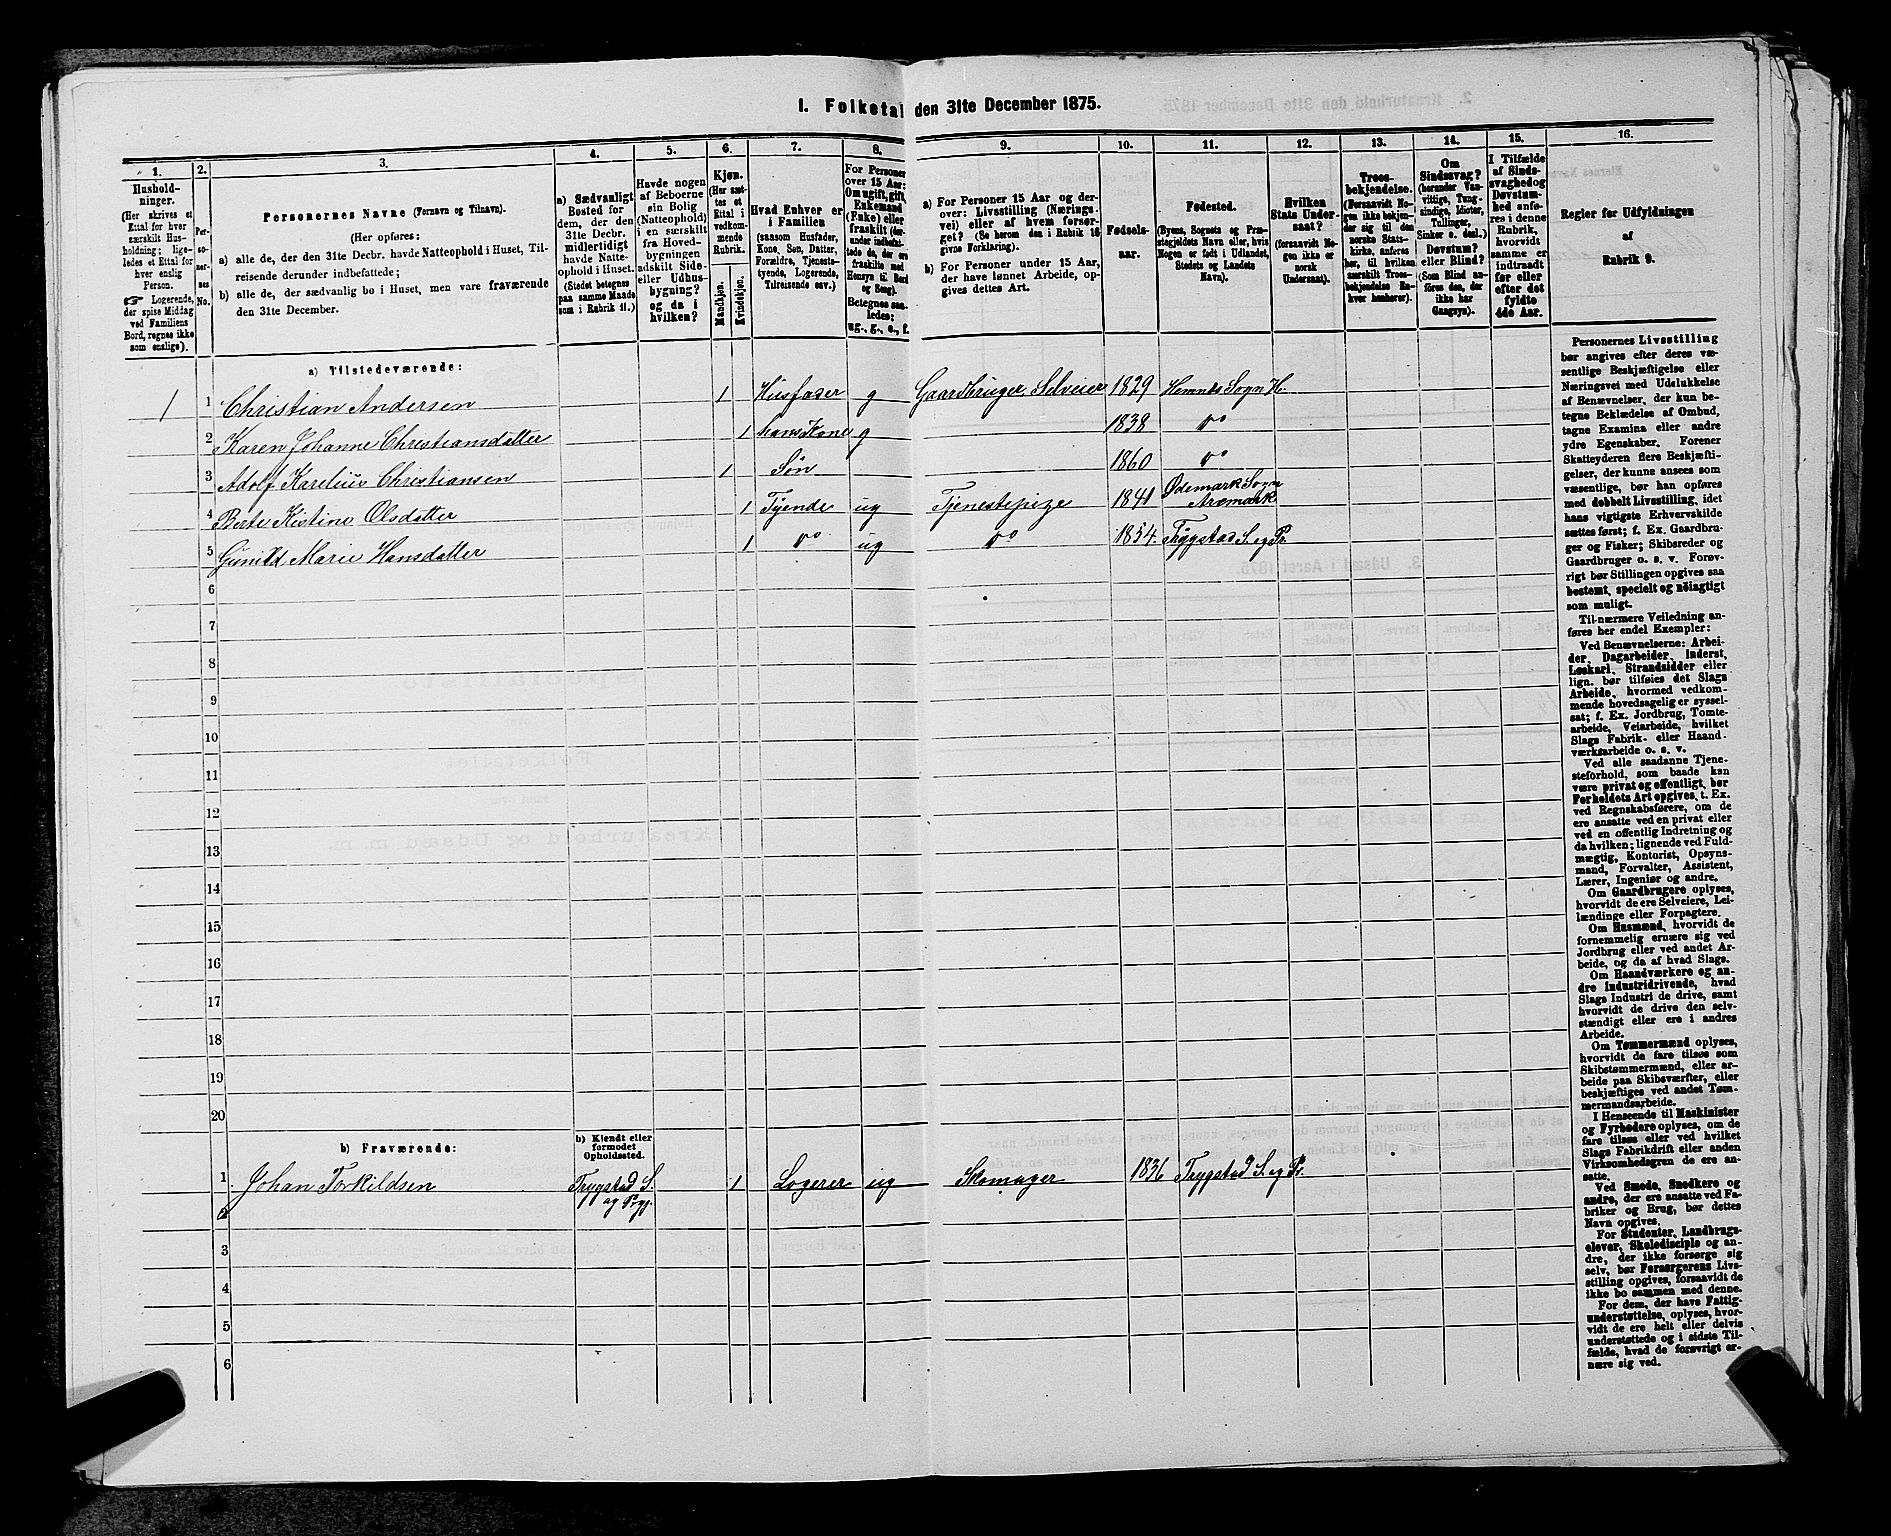 1. Folketal den 31te December 1875.
1. 2. 3. 4. 5. 6. 7. 8. 9. 10. 11. 12. 13. 14. 15. 16.
Hushold-
ninger.
(Her skrives et
Ettal for hver
særskilt Hus-
holdning; lige-
ledes et Ettal for
hver enslig
Person.
☞ Logerende,
der spise Middag
ved Familiens
Bord, regnes ikke
som enslige).
Per-
so-
ner-
nes
No.
Personernes Navne (Fornavn og Tilnavn).
(Her opføres:
a) alle de, der den 31te Decbr. havde Natteophold i Huset, Til-
reisende derunder indbefattede;
b) alle de, der sædvanlig bo i Huset, men vare fraværende
den 31te December.
a) Sædvanligt
Bosted for
dem, der den
31te Decbr.
midlertidigt
havde Natte-
ophold i Huset.
(Stedet betegnes
paa samme Maade
som i Rubrik 11.)
Havde nogen
af Beboerne
sin Bolig
(Natteophold)
i en særskilt
fra Hoved-
bygningen
adskilt Side-
eller Udhus-
bygning?
og da i
hvilken?
Kjøn.
(Her sæt-
tes et
Ettal i
vedkom-
mende
Rubrik.
Mandkjøn.
Kvindekjøn.
Hvad Enhver er
i Familien
(saasom Husfader,
Kone, Søn, Datter,
Forældre, Tjeneste-
tyende, Logerende,
Tilreisende osv.)
For Personer
over 15 Aar:
Om ugift, gift,
Enkemand
(Enke) eller
fraskilt (der-
under indbefat-
tede de, der ere
fraskilte med
Hensyn til Bord
og Seng).
Betegnes saa-
ledes:
ug., g., e., f.
a) For Personer 15 Aar og der-
over: Livsstilling (Nærings-
vei) eller af hvem forsør-
get? (Se herom den i Rubrik 16
givne Forklaring).
b) For Personer under 15 Aar,
der have lønnet Arbeide, op-
gives dettes Art.
Fødsels-
aar.
Fødested.
(Byens, Sognets og Præ-
stegjeldets Navn eller, hvis
Nogen er født i Udlandet,
Stedets og Landets
Navn).
Hvilken
Stats Under-
saat?
(forsaavidt No-
gen ikke er
norsk
Undersaat).
Troes-
bekjendelse.
(Forsaavidt No-
gen ikke bekjen-
der sig til den
norske Stats-
kirke, anføres
her, til hvilken
særskilt Troes-
bekjendelse En-
hver henhører).
Om
Sindssvag?
(herunder Van-
vittige, Tung-
sindige, Idioter,
Tullinger,
Sinker o. desl.)
Døvstum?
eller Blind?
(Som Blind an-
føres den, der
ikke har
Gangsyn).
I Tilfælde
af Sinds-
svaghed og
Døvstum-
hed anfø-
res i denne
Rubrik,
hvorvidt
samme er
indtraadt
før eller
efter det
fyldte
4de Aar.
Regler for Udfyldningen
af
Rubrik 9.
a) Tilstedeværende:
1 1 Christian Andersen 1 Husfader g Gaardbruger Selveier 1829 Hemnes Sogn H.
2 Karen Johanne Christiansdatter 1 hans Kone g 1838 do
3 Adolf Karelius Christiansen 1 Søn 1860 do
4 Berte Kistine Olsdatter 1 Tyende ug Tjenestepige 1841 Ødemark Sogn
Aremark
5 Gunild Marie Hansdatter 1 do ug do 1854. Trygstad S. og Pr.
6
7
8
9
10
11
12
13
14
15
16
17
18
19
20
b) Fraværende:
b) Kjendt eller
formodet
Opholdssted.
1 Johan Torkildsen Trygstad S.
og Prgj. 1 Logerer ug Skomager 1836 Trygstad S. og Pr.
2
3
4
5
6
Personernes Livsstilling
bør angives efter deres væ-
sentlige Beskjæftigelse eller
Næringsvei med Udelukkelse
af Benævnelser, der kun be-
tegne Beklædelse af Ombud,
tagne Examina eller andre
ydre Egenskaber. Forener
Skatteyderen flere Beskjæfti-
gelser, der kunne ansees som
væsentlige, bør han opføres
med dobbelt Livsstilling, idet
hans vigtigste Erhvervskilde
sættes først; f. Ex. Gaardbru-
ger og Fisker; Skibsreder og
Gaardbruger o. s. v. Forøv-
rigt bør Stillingen opgives saa
bestemt, specielt og nøiagtigt
som muligt.
Til nærmere Veiledning an-
føres her endel Exempler:
Ved Benævnelserne: Arbei-
der, Dagarbeider, Inderst,
Løskarl, Strandsidder eller
lign. bør tilføies det Slags
Arbeide, hvormed vedkom-
mende hovedsagelig er syssel-
sat; f. Ex. Jordbrug, Tomte-
arbeide, Veiarbeide, hvilket
Slags Fabrik- eller Haand-
værksarbeide o. s. v.
Ved alle saadanne Tjene-
steforhold, som baade kan
være privat og offentligt, bør
Forholdets Art opgives, t. Ex.
ved Regnskabsførere, om de
ere ansatte ved en privat eller
ved en offentlig Indretning og
da hvilken; lignende ved Fuld-
mægtig, Kontorist, Opsyns-
mand, Forvalter, Assistent,
Lærer, Ingeniør og andre.
Om Gaardbrugere oplyses,
hvorvidt de ere Selveiere, Lei-
lændinge eller Forpagtere.
Om Husmænd, hvorvidt de
fornemmelig ernære sig ved
Jordbrug eller ved andet Ar-
beide, og da af hvad Slags.
Om Haandværkere og an-
dre Industridrivende, hvad
Slags Industri de drive, samt
hvorvidt de drive den selv-
stændigt eller ere i andres
Arbeide.
Om Tømmermænd oplyses,
hvorvidt de fare tilsøs som
Skibstømmermænd, eller ar-
beide paa Skibsværfter, eller
beskjæftiges ved andet Tøm-
mermandsarbeide.
I Henseende til Maskinister
og Fyrbødere oplyses, om de
fare tilsøs eller ved hvilket
Slags Fabrikdrift eller anden
Virksomhedsgren de ere an-
satte.
Ved Smede, Snedkere og
andre, der ere ansatte ved Fa-
briker og Brug, bør dettes
Navn opgives.
For Studenter, Landbrugs-
elever, Skoledisciple og an-
dre, der ikke forsørge sig
selv, bør Forsørgerens Livs-
stilling opgives, forsaavidt de
ikke bo sammen med denne.
For dem, der have Fattig-
understøttelse, oplyses, hvor-
vidt de ere helt eller delvis
understøttede og i sidste Til-
fælde, hvad de forøvrigt er-
nære sig ved.